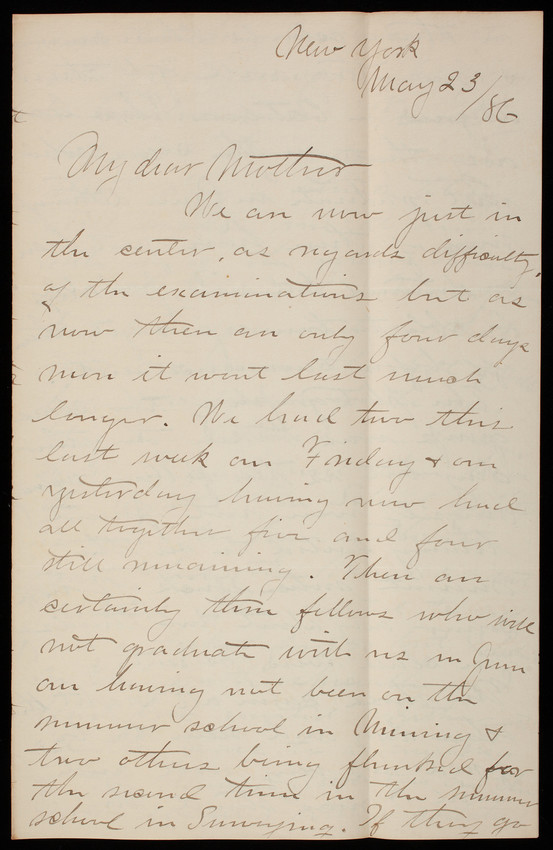 New York
May 23/86
My dear Mother
We are now just in
the center, as regards difficulty,
of the examinations but as
now there are only four days
more it wont last much
longer. We had two this
last week on Friday & on
yesterday having now had
all together five and four
still remaining. There are
certainly three fellows who will
not graduate with us in June
one having not been on the
summer school in Mining &
two others being flunked for
the second time in the summer
school in Surveying. If they go